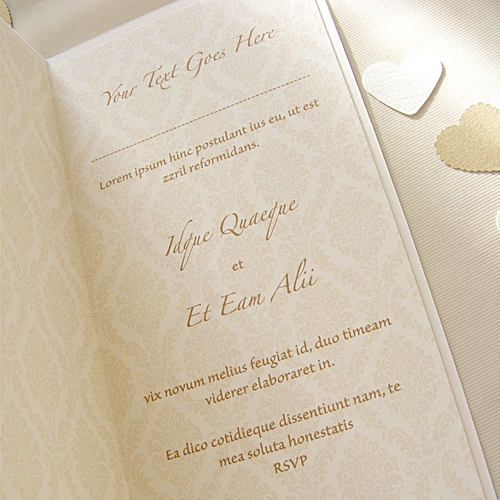 Your Text Goes Here
Lorem ipsum hinc postulant ius eu, ut est
zzril reformidans.
Idque Quaeque
et
Et Eam Alii
vix novum melius feugiat id, duo timeam
viderer elaboraret in.
Ea dico cotidieque dissentiunt nam, te
mea soluta honestatis
RSVP